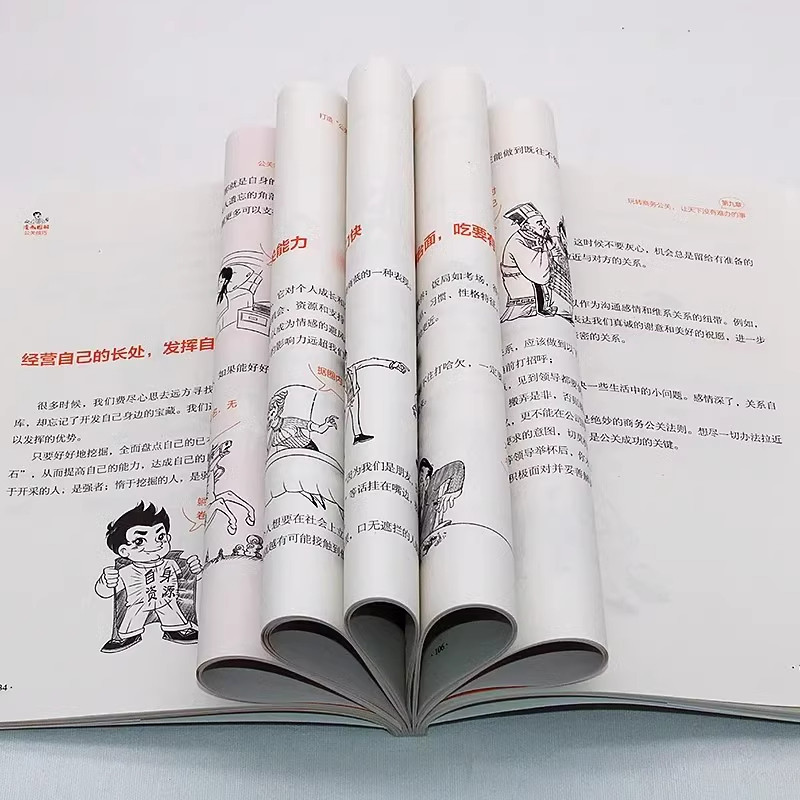 漫画图解
公关技巧
经营自己的长处，发挥自
很多时候，我们费尽心思去远方寻找
库，却忘记了开发自己身边的宝藏。我们
以发挥的优势。
只要好好地挖掘，全面盘点自己的
石”，从而提高自己的能力，达成自己的
于开采的人，是强者；惰于挖掘的人，是
自身
资源
就是自身的
人遗忘的角落
更多可以支
如果能好好
无
能力
它对个人成长和
机会、资源和支持
以成为情感的避风
的影响力远超我们
据圈内
人想要在社会上立
越有可能接触到
快
低的一种表现
因为我们是朋友
等话挂在嘴边
口无遮拦的人
面，吃要有
饭局如考场，
习惯、性格特征
不住打哈欠，一定
106
能做到既往不
系，应该做到
前打招呼；
见到领导都要
搬弄是非，否则
更不能在公
要求的意图，切莫
领导举杯后，你
积极面对并妥善解
玩转商务公关，让天下没有难办的事
第九章
这时候不要灰心，机会总是留给有准备的
近与对方的关系。
以作为沟通感情和维系关系的纽带。例如，
表达我们真诚的谢意和美好的祝愿，进一步
密的关系。
决一些生活中的小问题。感情深了，关系自
是绝妙的商务公关法则。想尽一切办法拉近
是公关成功的关键。